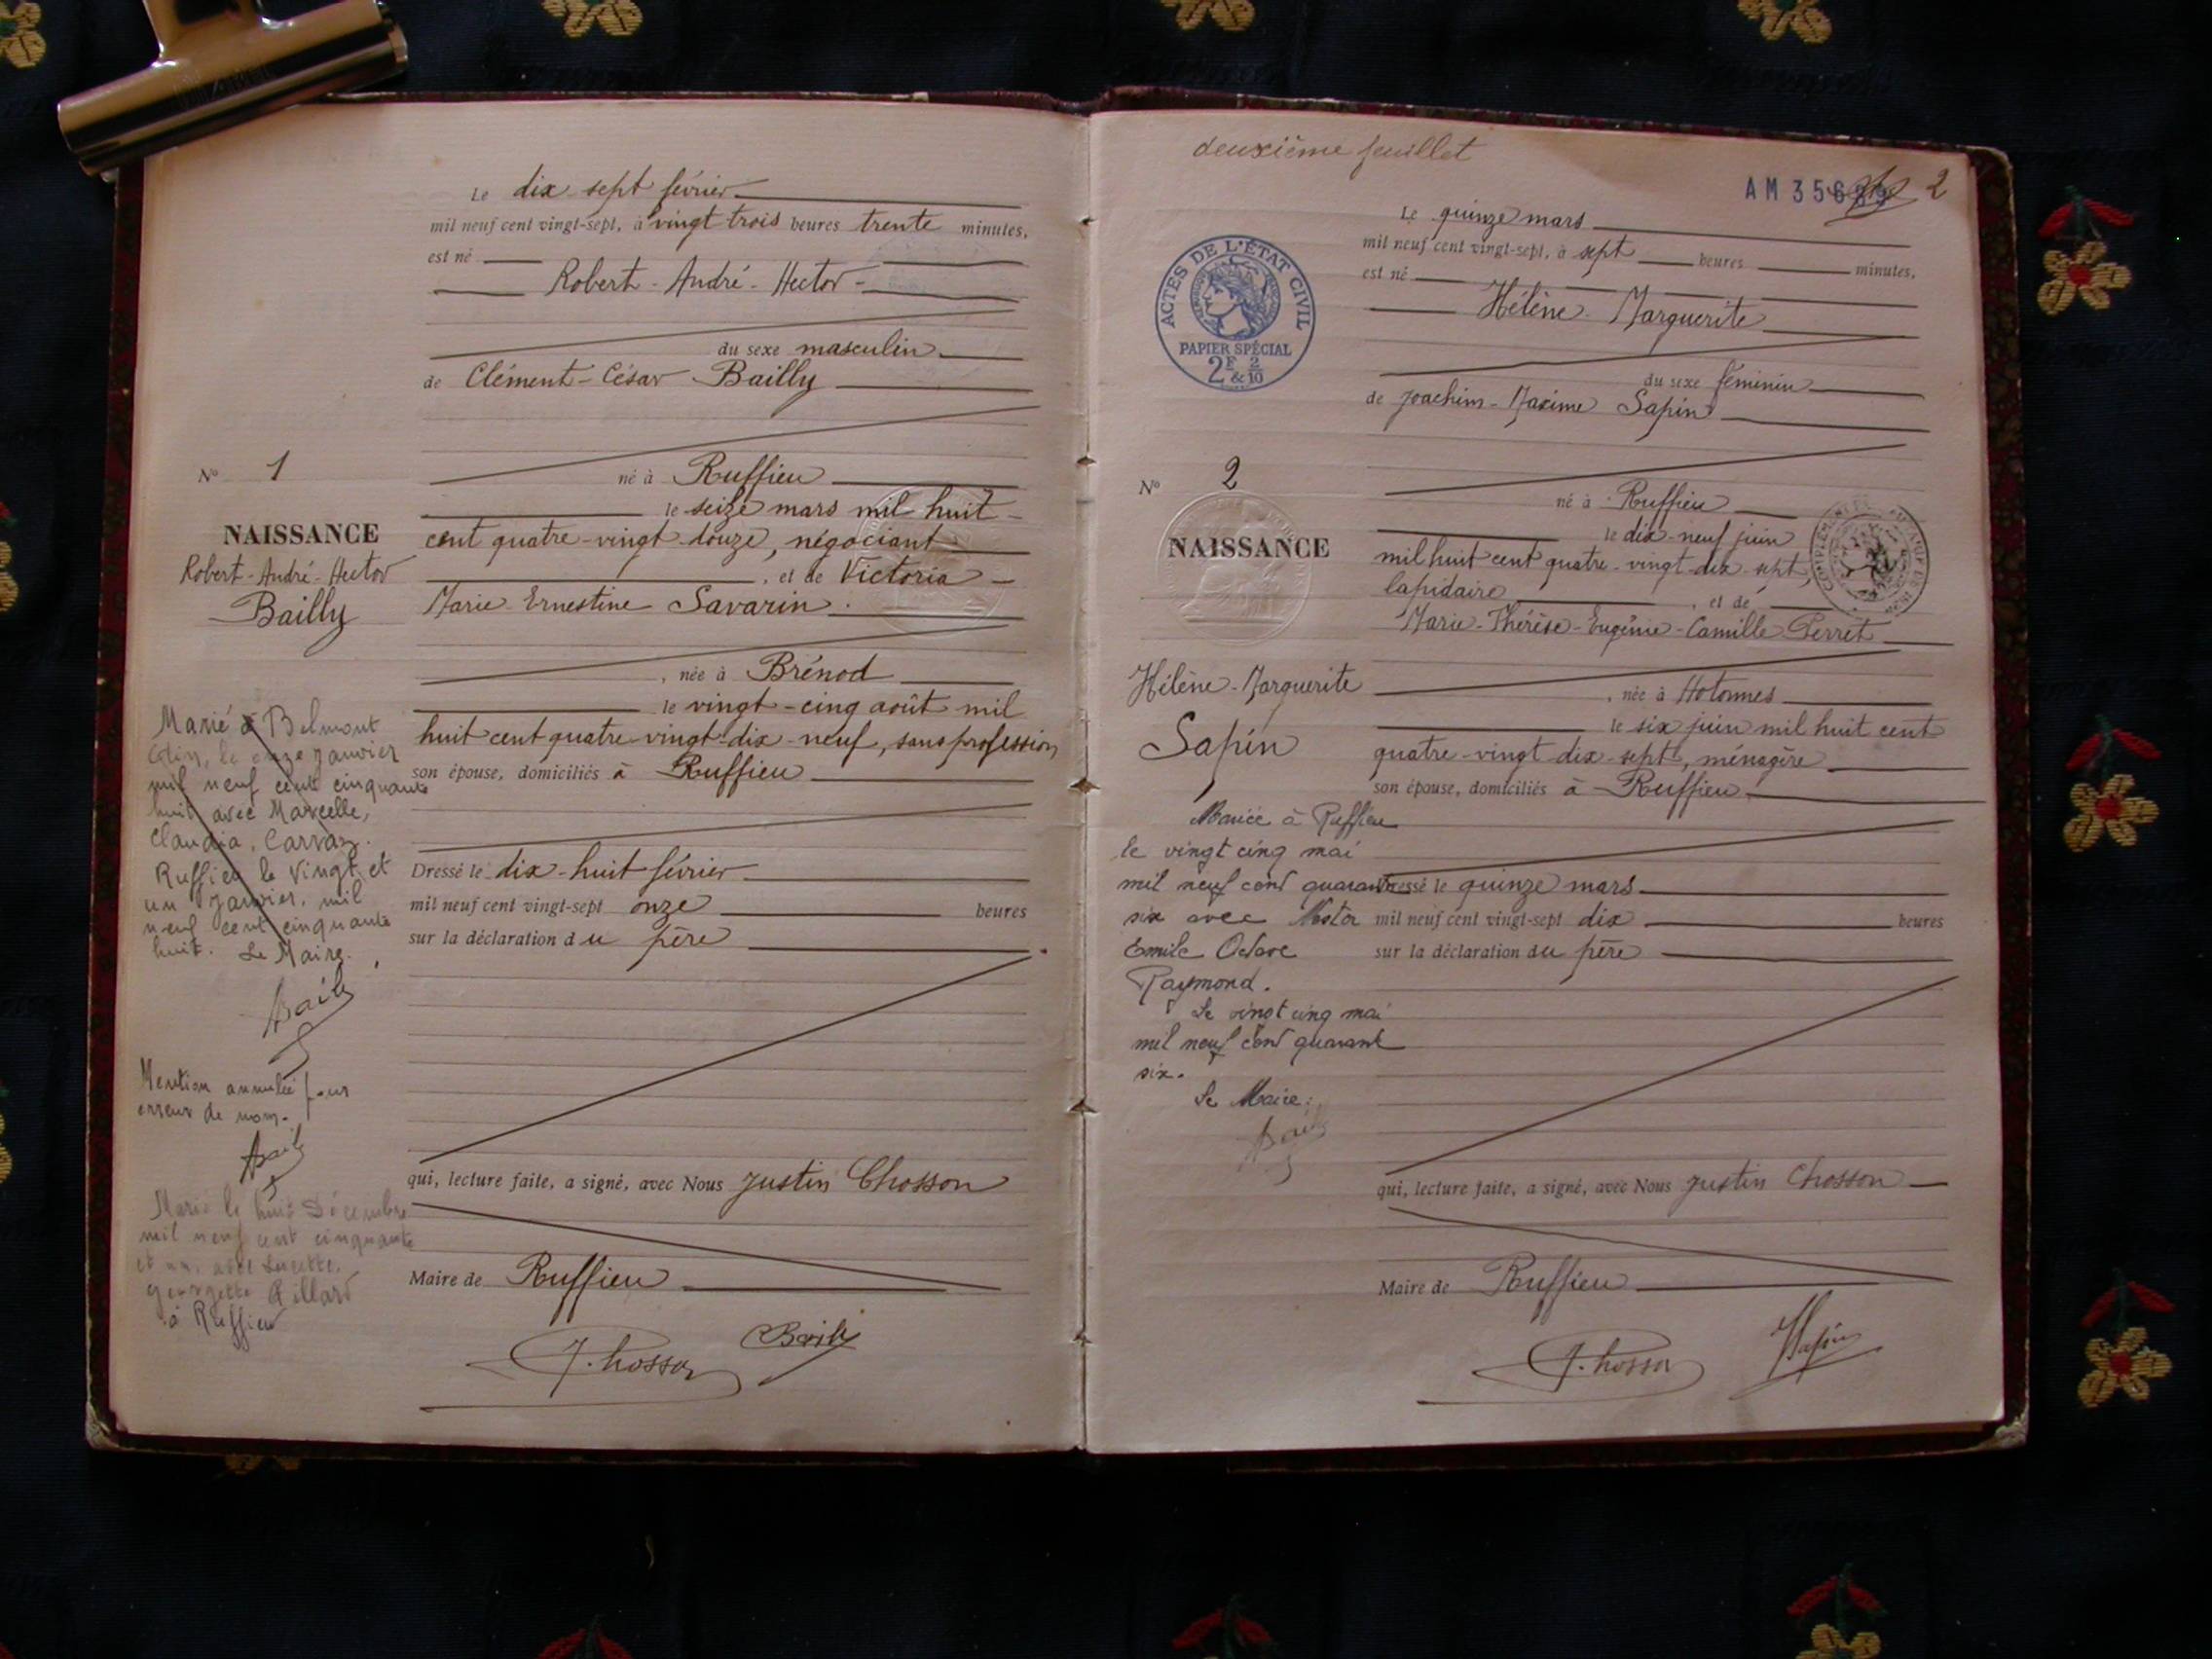 Le dix-sept février
mil neuf cent vingt-sept, à vingt trois heures trente minutes,
est né
Robert-André-Hector-
du sexe masculin
de Clément-César Bailly
né à Ruffieu
le seize mars mil huit-
cent quatre-vingt-douze, négociant
, et de Victoria-
Marie-Ernestine Savarin.
, née à Brénod
le vingt-cinq août mil
huit cent quatre-vingt-dix-neuf, sans profession
son épouse, domiciliés à Ruffieu
Dressé le dix-huit février
mil neuf cent vingt-sept onze heures
sur la déclaration du père
qui, lecture faite, a signé, avec Nous Justin Chosson
Maire de Ruffieu
J. Chosson Bailly
No 1
NAISSANCE
Robert-André-Hector
Bailly
Marié à Belmont
le onze Janvier
mil neuf cent cinquante
huit avec Marcelle,
Claudia, Carraz.
Ruffieu le Vingt et
un Janvier, mil
neuf cent cinquante
huit. Le Maire.
Mention annulée pour
erreur de nom.
Marié le huit Décembre
mil neuf cent cinquante
et un, avec Lucette,
Georgette
à Ruffieu
deuxième feuillet
AM 35 2
Le quinze mars
mil neuf cent vingt-sept, à sept heures minutes,
est né
Hélène-Marguerite
du sexe féminin
de Joachim-Maxime Sapin
né à Ruffieu
le dix-neuf juin
mil huit cent quatre-vingt-dix-sept,
lapidaire , et de
Marie-Thérèse-Eugénie-Camille Perret
, née à Hotonnes
le six juin mil huit cent
quatre-vingt dix-sept, ménagère
son épouse, domiciliés à Ruffieu
Dressé le quinze mars
mil neuf cent vingt-sept dix heures
sur la déclaration du père
qui, lecture faite, a signé, avec Nous Justin Chosson
Maire de Ruffieu
J. Chosson Sapin
ACTES DE L'ÉTAT CIVIL
PAPIER SPÉCIAL
2F & 2/10
No 2
NAISSANCE
Hélène-Marguerite
Sapin
Mariée à Ruffieu
le vingt cinq mai
mil neuf cent quarante
six avec Nestor
Emile Octave
Raymond.
Le vingt cinq mai
mil neuf cent quarant
six.
Le Maire: